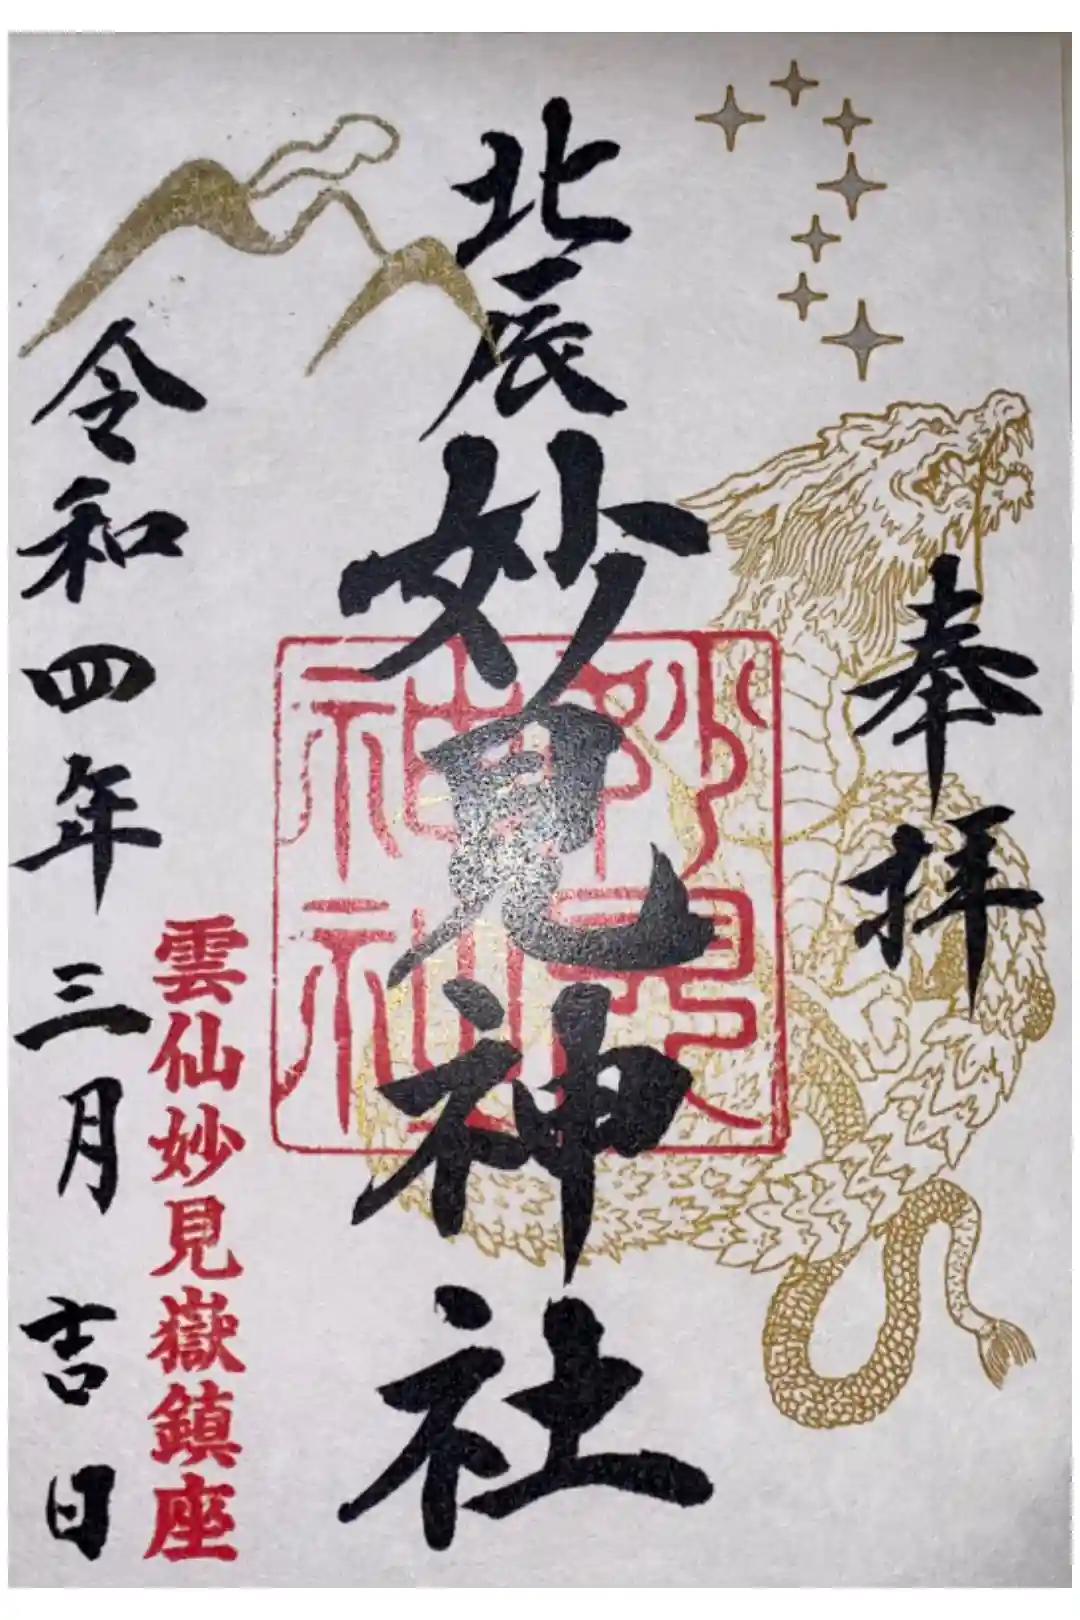 奉拝
北辰妙見神社
妙見神社
雲仙妙見嶽鎮座
令和四年三月吉日